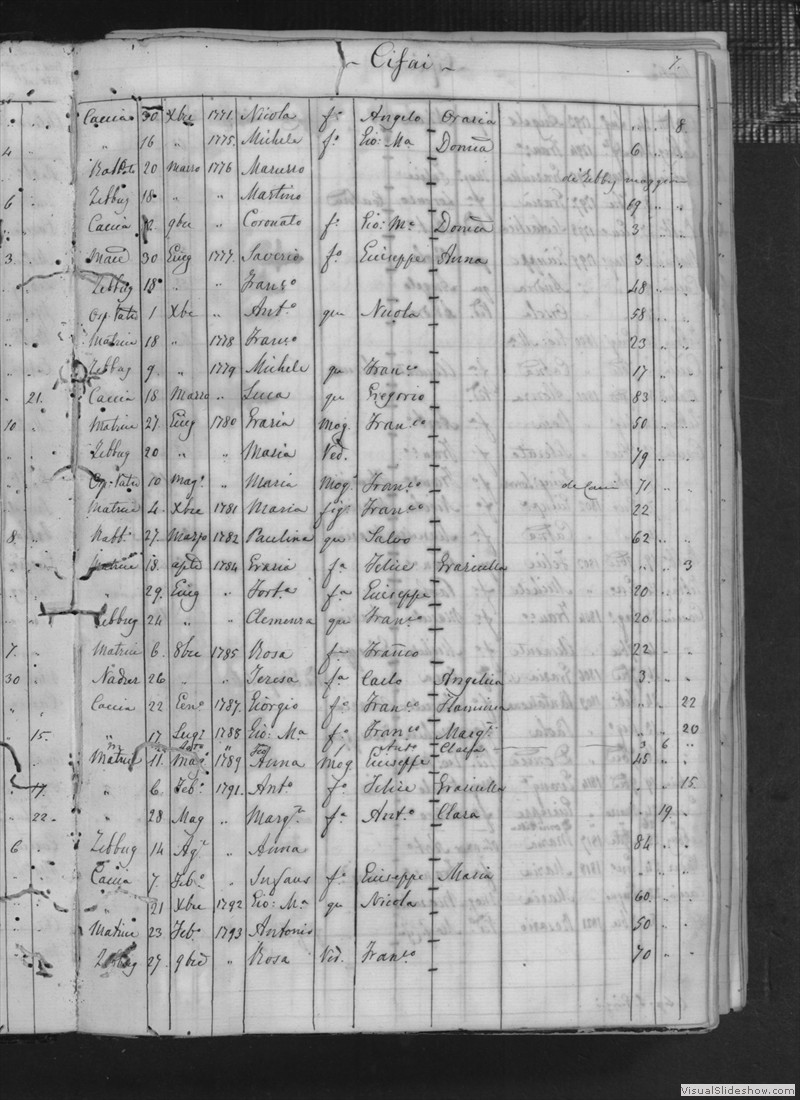 ~ Cifai ~ 7.
Caccia 30 Xbre 1771. Nicola fo Angelo Orasia " " 8
4 " " 16 " 1775. Michele fo Gio: Ma Domca 6 " "
Rabbto 20 Marzo 1776 Maruzzo de Zebbug maggiore
6 " Zebbug 18 " " Martino 69 " "
Caccia 2. 9bre " Coronato fo Gio: Ma Domca 3 " "
3. " 30 Giug 1777. Saverio fo Giuseppe Anna 3 " "
Zebbug 18 " " Franco 48 " "
" 1 Xbre " Anto qm Nicola 58 " "
Matrice 18 " 1778 Franco 23 " "
Zebbug 9 " 1779 Michele qm Franco 17 " "
" 21. Caccia 18 Marzo " Luca qm Gregorio 83 " "
10 " Matrice 27. Giug 1780 Grazia Mog. Franco 50 " "
Zebbug 20 " " Maria Ved. 79 " "
10 Mago " Maria Mog. Franco 71 " "
Matrice 4. Xbre 1781 Maria fig. Franco 22
8. " Rabbto 27. Marzo 1782 Paulina qm Salvo 62 " "
Matrice 18. 1784 Grazia fa Felice Graziulla " " 3
" 29. Giug " Forta fa Giuseppe 20 " "
Zebbug 24 " " Clemenza qm Franco 20 " "
7. " Matrice 6. 8bre 1785 Rosa fa Franco 22 " "
30 " 26 " " Teresa fa Carlo Angelica 3 " "
" " Caccia 22 Geno 1787. Giorgio fo Franco Flaminia " " 22
" 15. " 17 Lugl 1788 Gio: Ma fo Franco Margta " " 20
" " " Anto Clara 3 6 "
Matrice 11. Mago 1789 Anna Mog Giuseppe 45 " "
" 17. " 6. Febo 1791. Anto fo Felice Grazulla " " 15
" 22. " 28 Mag " Margta fa Anto Clara " 19 "
6 " Zebbug 14 Ago " Anna 84 " "
Caccia 7. Febo " Infans fo Giuseppe Maria
" 21 Xbre 1792 Gio: Ma qm Nicola 60 " "
Matrice 23 Febo 1793 Antonio 50 " "
Zebbug 27. 9bre " Rosa Ved. Franco 70 " "
VisualSlideshow.com